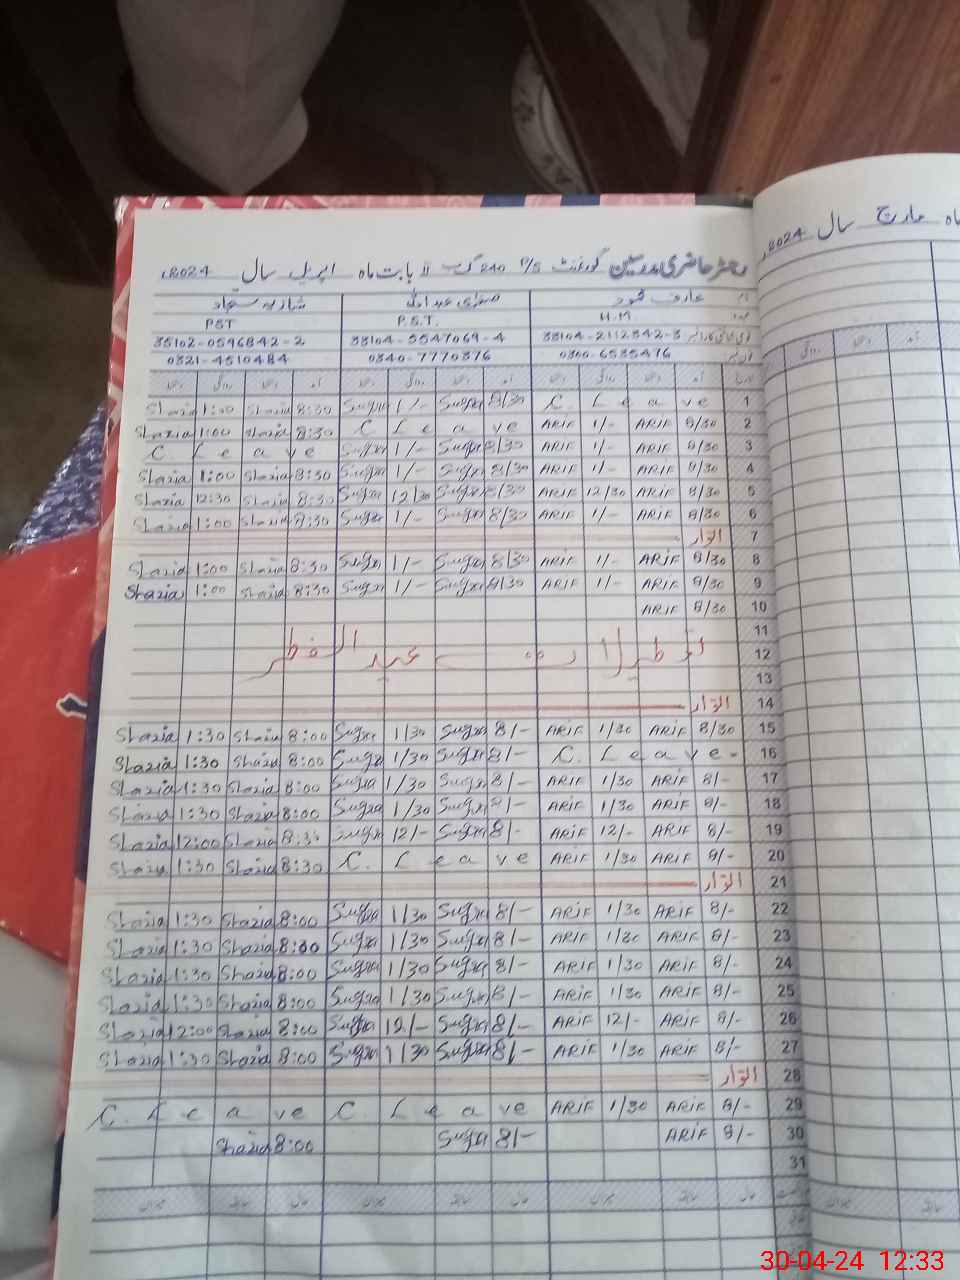 رجسٹر حاضری مدرسین گورنمنٹ P/S 240 گ ب II بابت ماہ اپریل سال 2024ء
ماہ مارچ سال 2024ء
عارف محمود صغریٰ عبداللہ شازیہ سجاد
H.M P.S.T. PST
38104-2112342-3 38104-5547069-4 35102-0596842-2
0300-6535476 0340-7770876 0321-4510484
1 C. Leave Sugra 8/30 Sugra 1/- Shazia 8:30 Shazia 1:00
2 8/30 ARIF 1/- ARIF C Leave 8:30 Shazia 1:00 Shazia
3 8/30 ARIF 1/- ARIF 8/30 Sugra 1/- Sugra C. Leave
4 8/30 ARIF 1/- ARIF 8/30 Sugra 1/- Sugra 8:30 Shazia 1:00 Shazia
5 8/30 ARIF 12/30 ARIF 8/30 Sugra 12/30 Sugra 8:30 Shazia 12:30 Shazia
6 8/30 ARIF 1/- ARIF 8/30 Sugra 1/- Sugra 8:30 Shazia 1:00 Shazia
7 اتوار
8 8/30 ARIF 1/- ARIF 8/30 Sugra 1/- Sugra 8:30 Shazia 1:00 Shazia
9 8/30 ARIF 1/- ARIF 8/30 Sugra 1/- Sugra 8:30 Shazia 1:00 Shazia
10 8/30 ARIF
11
12 عید الفطر
13
14 اتوار
15 8/30 ARIF 1/30 ARIF 8/- Sugra 1/30 Sugra 8:00 Shazia 1:30 Shazia
16 C. Leave 8/- Sugra 1/30 Sugra 8:00 Shazia 1:30 Shazia
17 8/- ARIF 1/30 ARIF 8/- Sugra 1/30 Sugra 8:00 Shazia 1:30 Shazia
18 8/- ARIF 1/30 ARIF 8/- Sugra 1/30 Sugra 8:00 Shazia 1:30 Shazia
19 8/- ARIF 12/- ARIF 8/- Sugra 12/- Sugra Shazia 12:00 Shazia
20 8/- ARIF 1/30 ARIF C. Leave 8:30 Shazia 1:30 Shazia
21 اتوار
22 8/- ARIF 1/30 ARIF 8/- Sugra 1/30 Sugra 8:00 Shazia 1:30 Shazia
23 8/- ARIF 1/30 ARIF 8/- Sugra 1/30 Sugra 8:00 Shazia 1:30 Shazia
24 8/- ARIF 1/30 ARIF 8/- Sugra 1/30 Sugra 8:00 Shazia 1:30 Shazia
25 8/- ARIF 1/30 ARIF 8/- Sugra 1/30 Sugra 8:00 Shazia 1:30 Shazia
26 8/- ARIF 12/- ARIF 8/- Sugra 12/- Sugra 8:00 Shazia 12:00 Shazia
27 8/- ARIF 1/30 ARIF 8/- Sugra 1/30 Sugra 8:00 Shazia 1:30 Shazia
28 اتوار
29 8/- ARIF 1/30 ARIF C. Leave C. Leave
30 8/- ARIF 8/- Sugra 8:00 Shazia
31
30-04-24 12:33